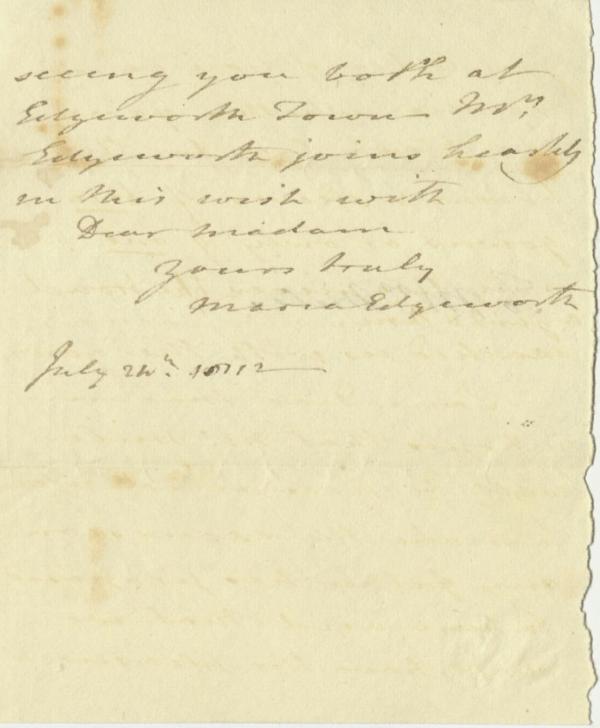 seeing you both at
Edgeworth Town Mrs
Edgeworth joins heartily
in this wish with
Dear madam
yours truly
Maria Edgeworth
July 24th 1812